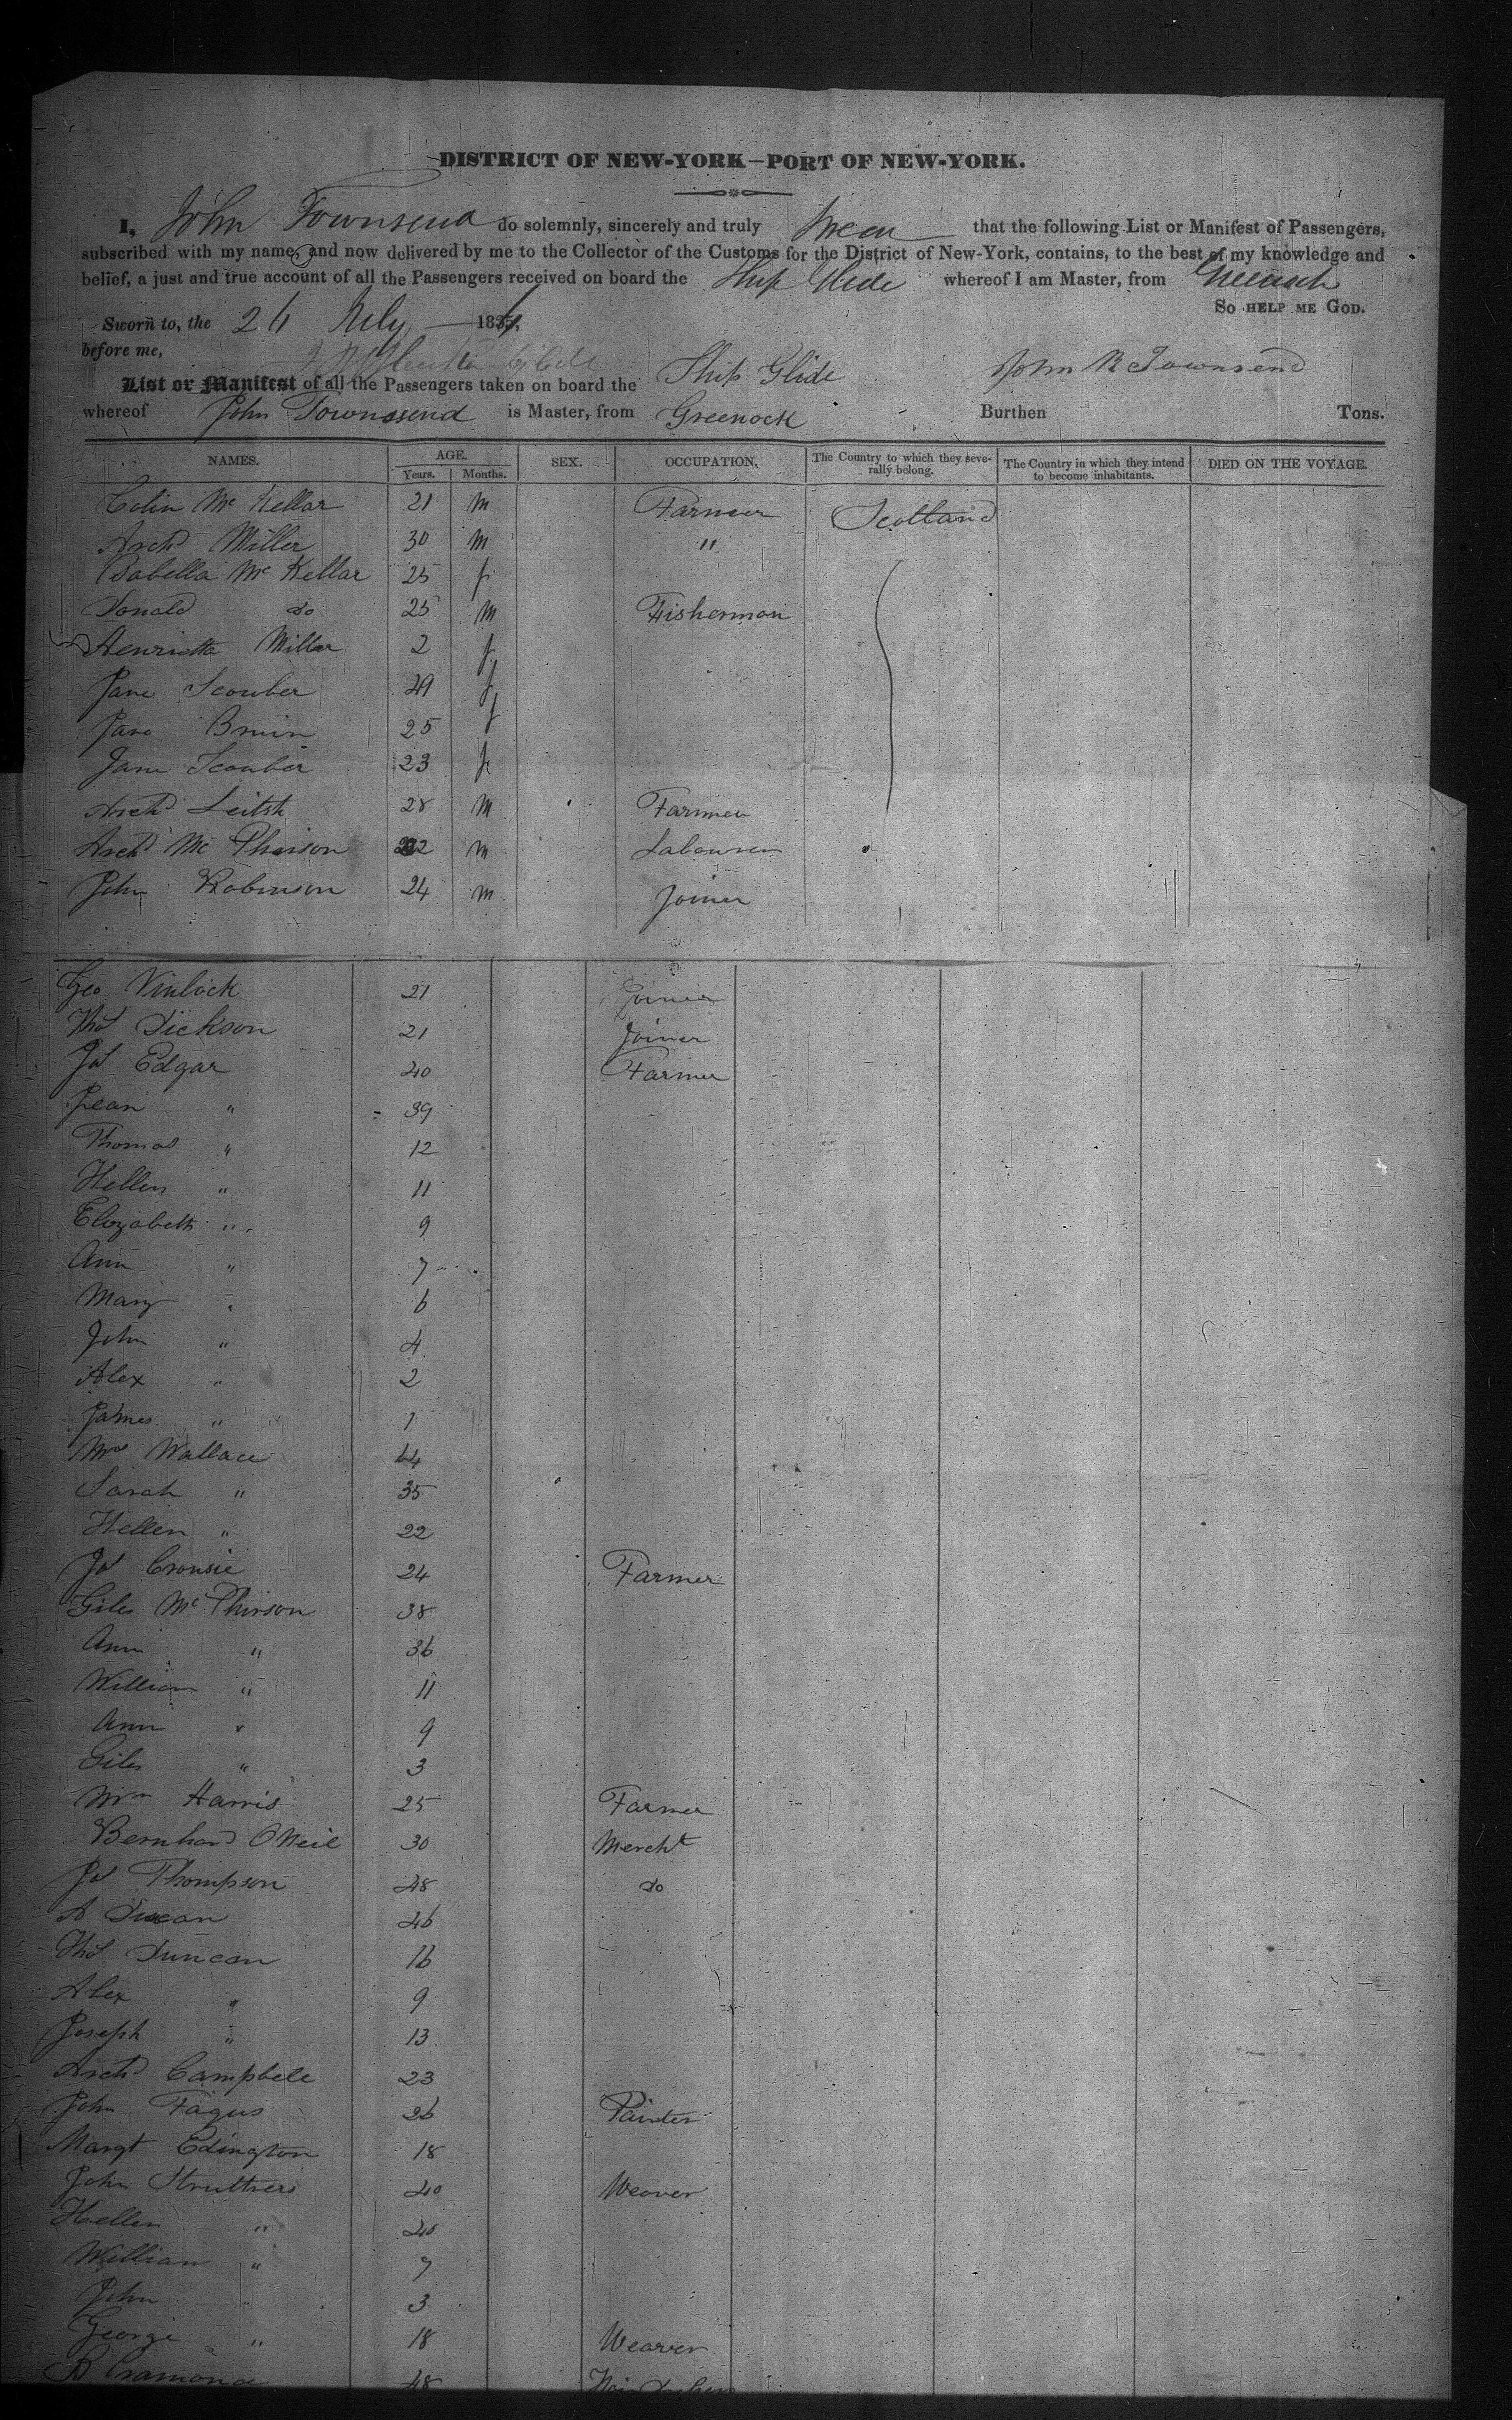 DISTRICT OF NEW-YORK—PORT OF NEW-YORK.
I, John Townsend do solemnly, sincerely and truly Swear that the following List or Manifest of Passengers,
subscribed with my name, and now delivered by me to the Collector of the Customs for the District of New-York, contains, to the best of my knowledge and
belief, a just and true account of all the Passengers received on board the Ship Glide whereof I am Master, from Greenock
So HELP ME GOD.
Sworn to, the 26 July 183
before me,
John R Townsend
List or Manifest of all the Passengers taken on board the Ship Glide
whereof John Townsend is Master, from Greenock Burthen Tons.
NAMES. AGE. SEX. OCCUPATION. The Country to which they severally belong. The Country in which they intend to become inhabitants. DIED ON THE VOYAGE.
Years. Months.
Colin Mc Kellar 21 m Farmer Scotland
Archd Miller 30 m "
Isabella Mc Kellar 25 f
Donald do 25 m Fisherman
Henrietta Millar 2 f
Jane Scouler 29 f
Jane 25 f
Jane Scouler 23 f
Archd Leitch 28 m Farmer
Archd Mc Phirson 22 m Labourer
John Robinson 24 m Joiner
Geo 21 Joiner
Thos Dickson 21 Joiner
Js Edgar 40 Farmer
Jean " 39
Thomas " 12
Hellen " 11
Elizabeth " 9
Ann " 7
Mary " 6
John " 4
Alex " 2
James " 1
Mrs Wallace 44
Sarah " 35
Hellen " 22
Js Crousie 24 Farmer
Giles Mc Phirson 38
Ann " 36
William " 11
Ann " 9
Giles " 3
Wm Harris 25 Farmer
Bernhard ONeil 30 Mercht
Js Thompson 48 do
A 46
Thos Duncan 16
Alex " 9
Joseph " 13
Archd Campbell 23
John Fagus 26 Painter
Margt Edington 18
John Struthers 40 Weaver
Hellen " 40
William " 7
John 3
George " 18 Weaver
Cramond 48